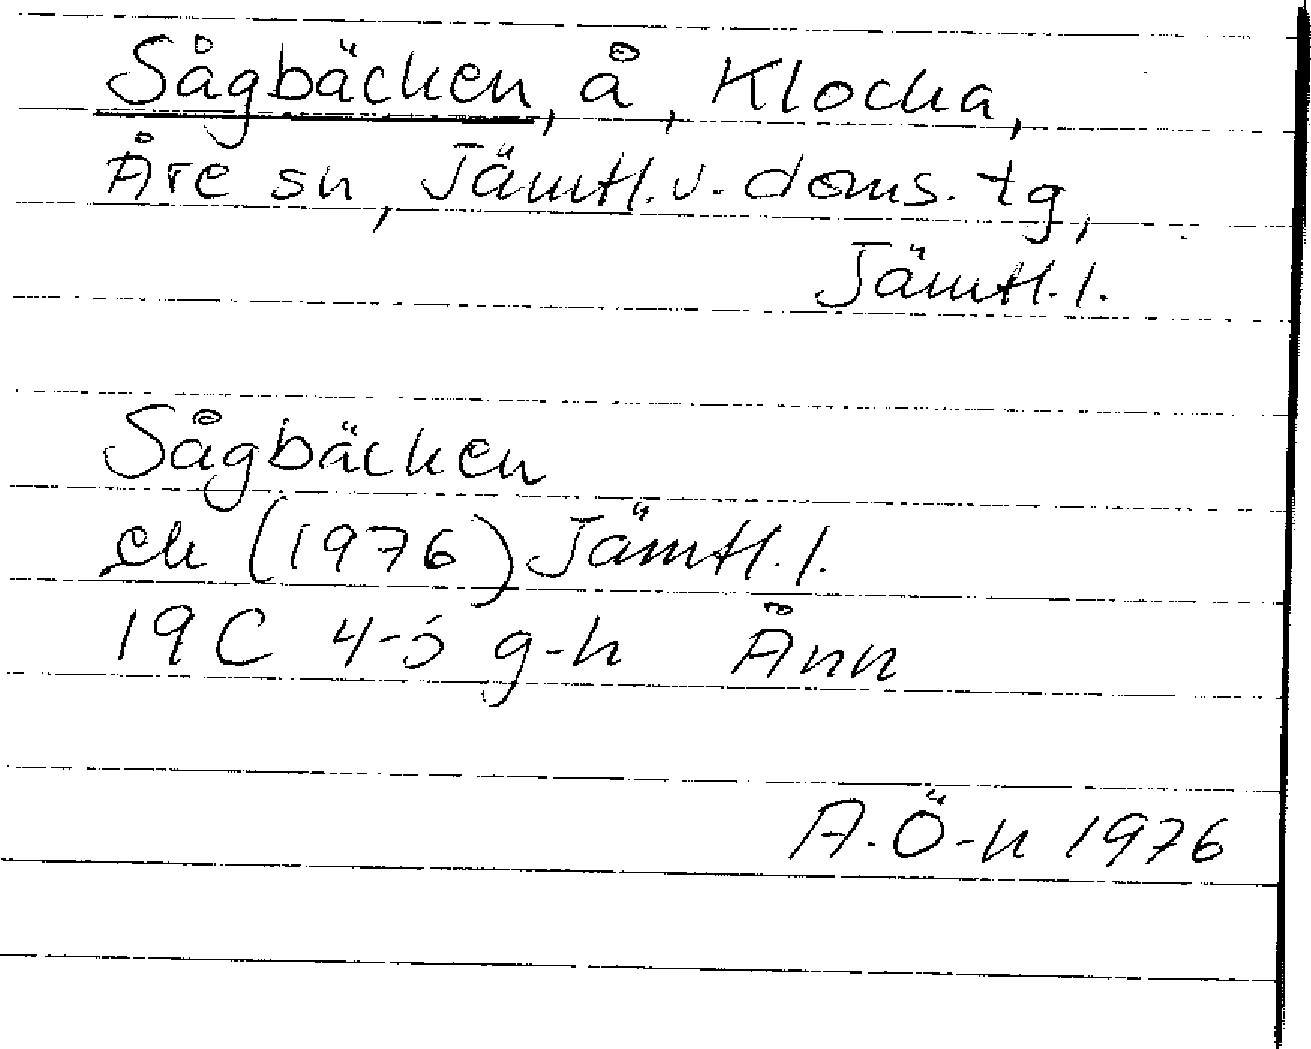 Sågbäcken, å, Klocka,
Åre sn, Jämtl. v. doms. tg,
Jämtl. l.
Sågbäcken
ek (1976) Jämtl. l.
19C 4-5 g-h Ånn
A.Ö-n 1976